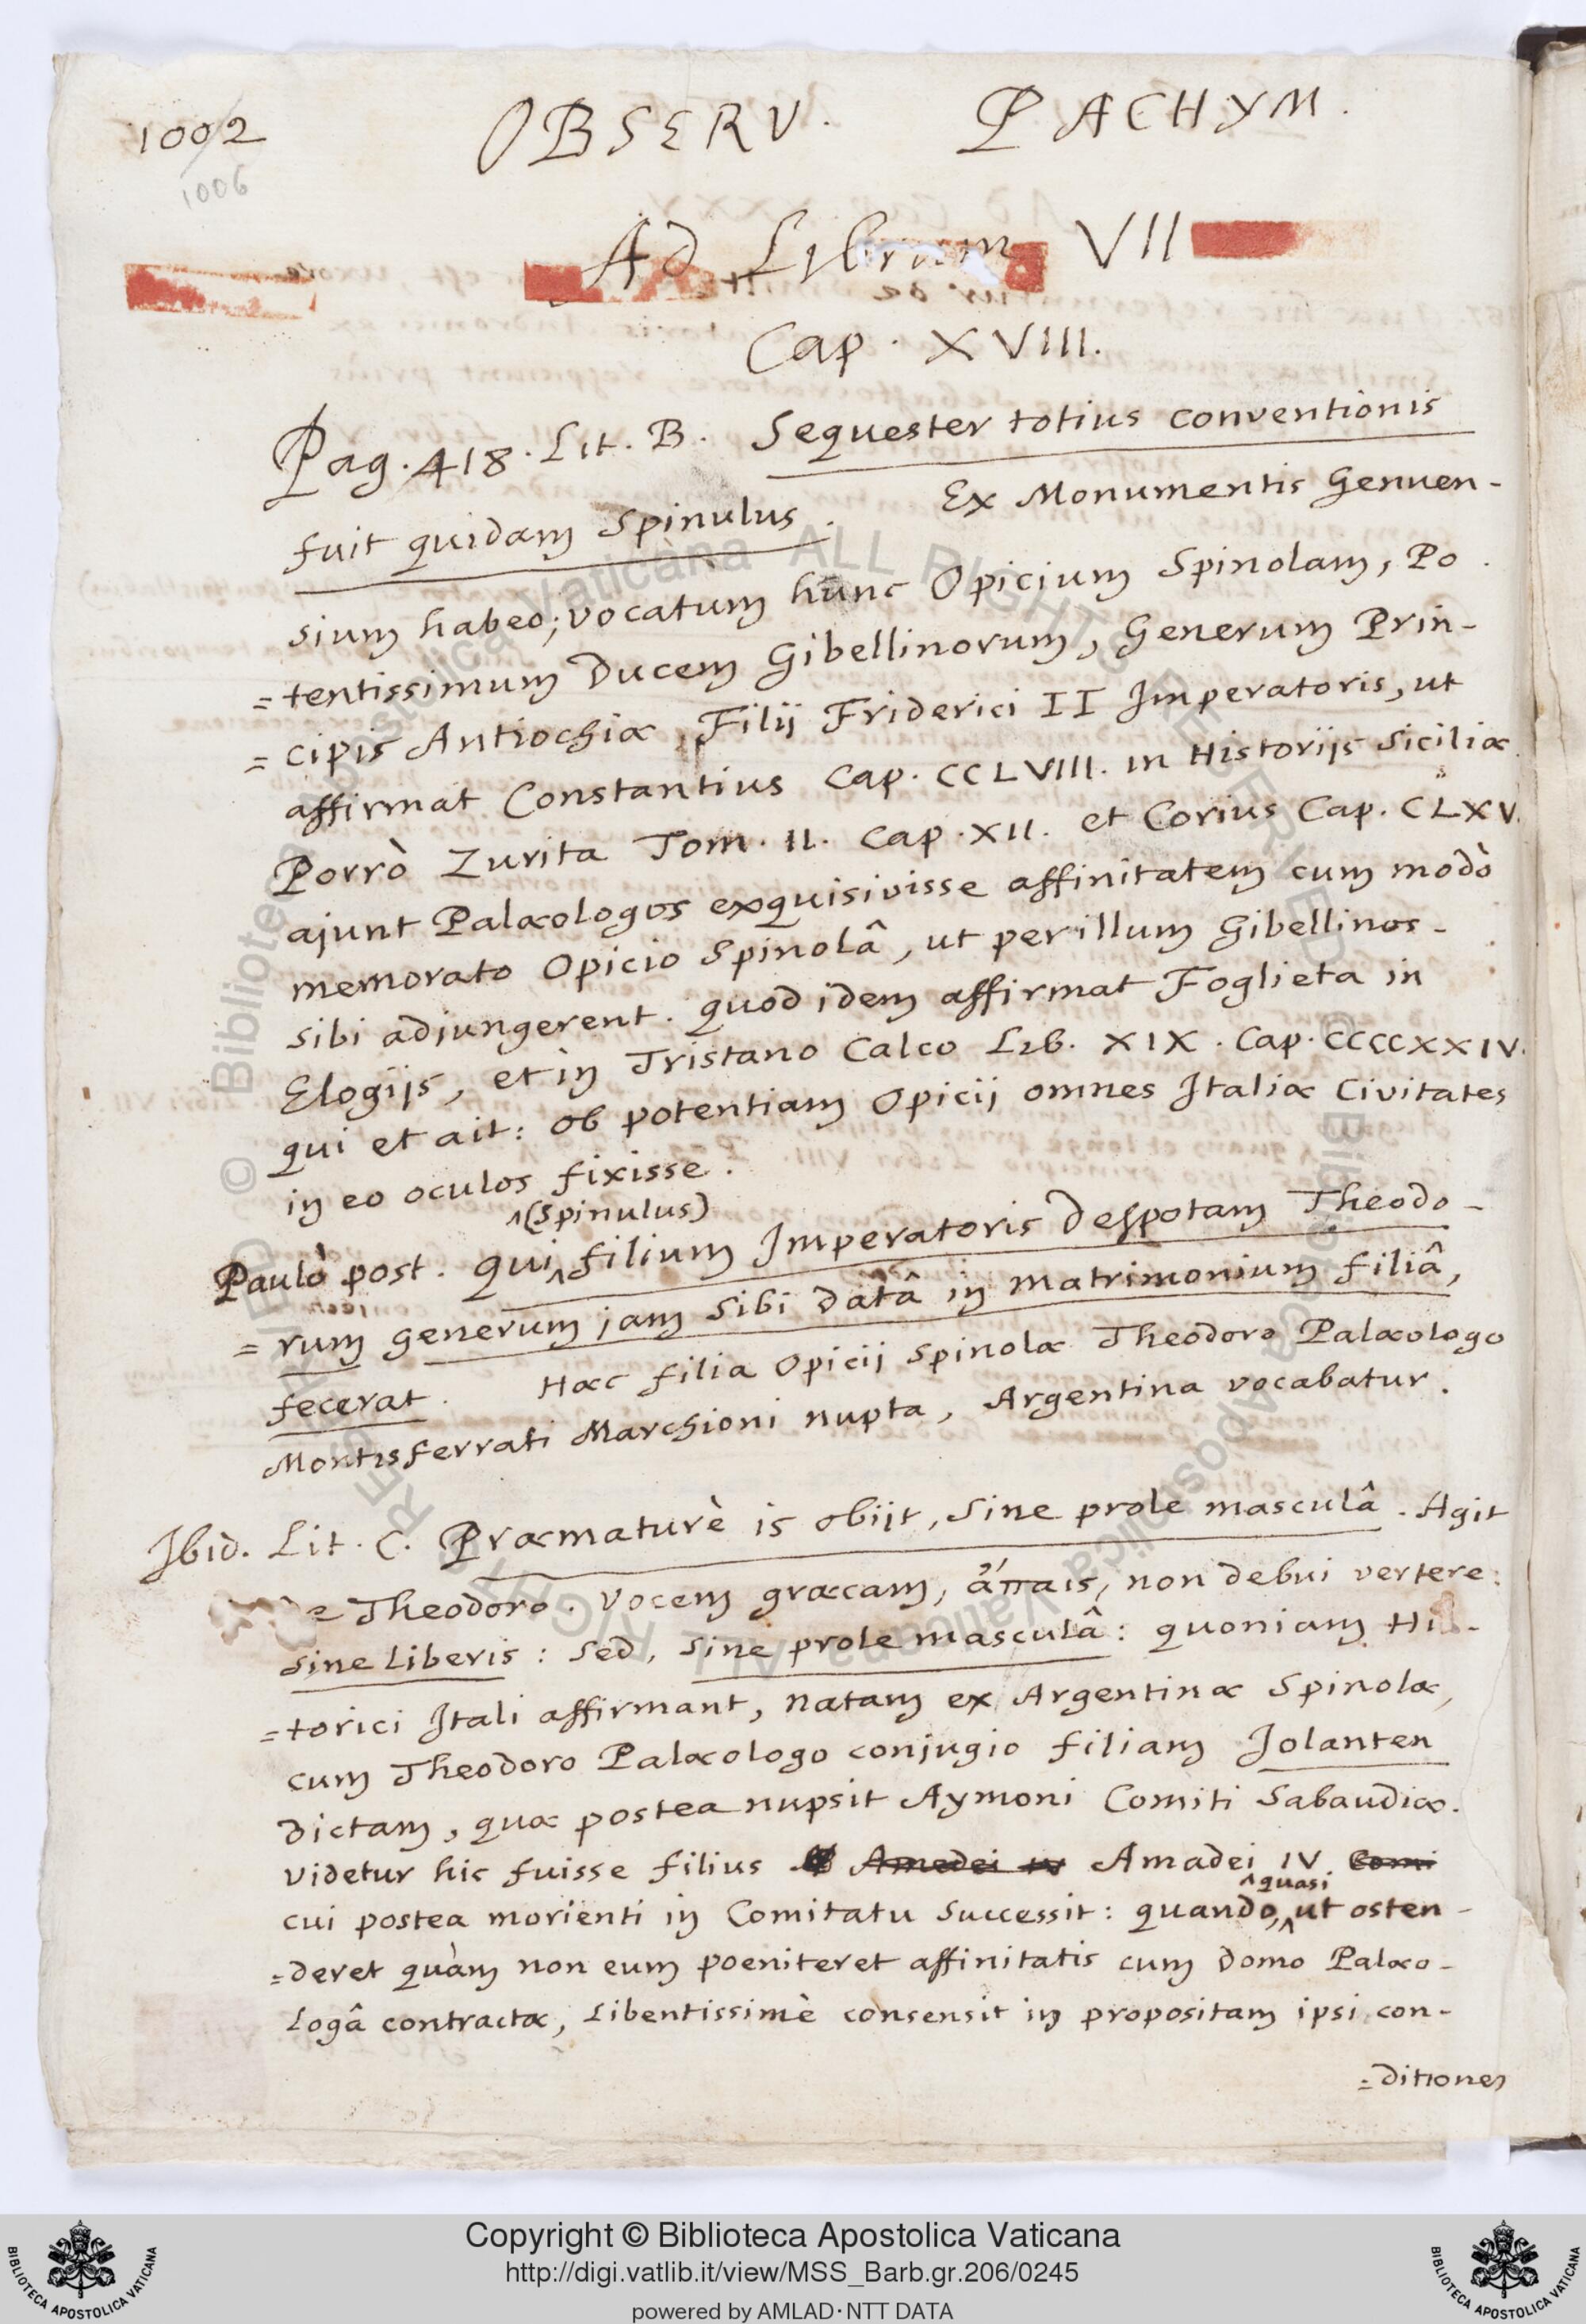 1002
OBSERV. PACHYM.
1006
Ad Librum VII
Cap. XVIII.
Pag. 418. Lit. B. Sequester totius conventionis
fuit quidam Spinulus. Ex Monumentis Genuen-
sium habeo; vocatum hunc Opicium Spinolam, Po
=tentissimum Ducem Gibellinorum, Generum Prin-
=cipis Antiochiæ, Filij Friderici II Imperatoris, ut
affirmat Constantius Cap. CCLVIII. in Historijs Siciliæ
Porrò Zurita Tom. II. Cap. XII. et Corius Cap. CLXV.
ajunt Palæologos exquisivisse affinitatem cum modò
memorato Opicio Spinolâ, ut per illum Gibellinos
sibi adjungerent. quod idem affirmat Foglieta in
Elogijs, et in Tristano Calco Lib. XIX. Cap. CCCCXXIV.
qui et ait: ob potentiam Opicij omnes Italiæ Civitates
in eo oculos fixisse.
^(Spinulus)
Paulò post. Qui ^ filium Imperatoris Despotam Theodo-
=rum generum jam sibi datâ in matrimonium filiâ,
fecerat. Hæc filia Opicij Spinolæ Theodoro Palæologo
Montisferrati Marchioni nupta, Argentina vocabatur.
Ibid. Lit. C. Præmaturè is obijt, sine prole masculâ. Agit
Theodoro. Vocem græcam, ἄπαις, non debui vertere:
sine liberis: sed, sine prole masculâ: quoniam Hi-
=torici Itali affirmant, natam ex Argentinæ Spinolæ,
cum Theodoro Palæologo conjugio filiam Jolanten
dictam, quæ postea nupsit Aymoni Comiti Sabaudiæ.
Videtur hic fuisse filius Amedei IV Amadei IV. Comi
^quasi
cui postea morienti in Comitatu Successit: quando, ^ ut osten-
=deret quàm non eum poeniteret affinitatis cum domo Palæo-
logâ contractæ, libentissimè consensit in propositam ipsi con-
=ditionem
© Biblioteca Apostolica Vaticana ALL RIGHTS RESERVED
Copyright © Biblioteca Apostolica Vaticana
http://digi.vatlib.it/view/MSS_Barb.gr.206/0245
powered by AMLAD·NTT DATA
BIBLIOTECA APOSTOLICA VATICANA
BIBLIOTECA APOSTOLICA VATICANA